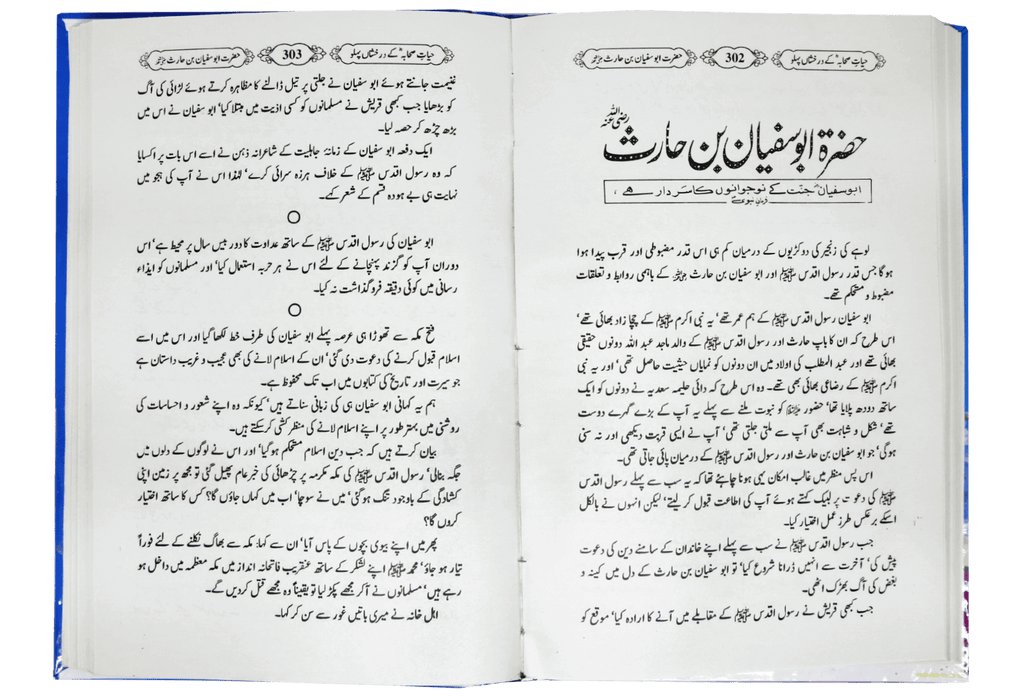 حیاتِ صحابہؓ کے درخشاں پہلو
302
حضرت ابو سفیان بن حارث رضی اللہ عنہ
حضرۃ ابو سفیان بن حارث رضی اللہ عنہ
ابوسفیانؓ جنت کے نوجوانوں کا سردار ہے ،
فرمانِ نبویؐ
لوہے کی زنجیر کی دو کڑیوں کے درمیان کم ہی اس قدر مضبوطی اور قرب پیدا ہوا
ہو گا جس قدر رسول اقدس ﷺ اور ابو سفیان بن حارث رضی اللہ عنہ کے باہمی روابط و تعلقات
مضبوط و مستحکم تھے۔
ابو سفیان رسول اقدس ﷺ کے ہم عمر تھے‘ یہ نبی اکرم ﷺ کے چچا زاد بھائی تھے‘
اس طرح کہ ان کا باپ حارث اور رسول اقدس ﷺ کے والد ماجد عبد اللہ دونوں حقیقی
بھائی تھے اور عبد المطلب کی اولاد میں ان دونوں کو نمایاں حیثیت حاصل تھی‘ اور یہ نبی
اکرم ﷺ کے رضاعی بھائی بھی تھے۔ وہ اس طرح کہ دائی حلیمہ سعدیہ نے دونوں کو ایک
ساتھ دودھ پلایا تھا‘ حضور ﷺ کو نبوت ملنے سے پہلے یہ آپ کے بڑے گہرے دوست
تھے‘ شکل و شباہت بھی آپ سے ملتی جلتی تھی‘ آپ نے ایسی قربت دیکھی اور نہ سنی
ہوگی‘ جو ابو سفیان بن حارث اور رسول اقدس ﷺ کے درمیان پائی جاتی تھی۔
اس پس منظر میں غالب امکان یہی ہونا چاہئے تھا کہ یہ سب سے پہلے رسول اقدس
ﷺ کی دعوت پر لبیک کہتے ہوئے آپ کی اطاعت قبول کر لیتے‘ لیکن انہوں نے بالکل
اسکے برعکس طرز عمل اختیار کیا۔
جب رسول اقدس ﷺ نے سب سے پہلے اپنے خاندان کے سامنے دین کی دعوت
پیش کی‘ آخرت سے انہیں ڈرانا شروع کیا‘ تو ابو سفیان بن حارث کے دل میں کینہ و
بغض کی آگ بھڑک اٹھی۔
جب کبھی قریش نے رسول اقدس ﷺ کے مقابلے میں آنے کا ارادہ کیا‘ موقع کو
حیاتِ صحابہؓ کے درخشاں پہلو
303
حضرت ابو سفیان بن حارث رضی اللہ عنہ
غنیمت جانتے ہوئے ابو سفیان نے جلتی پر تیل ڈالنے کا مظاہرہ کرتے ہوئے لڑائی کی آگ
کو بڑھایا جب کبھی قریش نے مسلمانوں کو کسی اذیت میں مبتلا کیا‘ ابو سفیان نے اس میں
بڑھ چڑھ کر حصہ لیا۔
ایک دفعہ ابو سفیان کے زمانۂ جاہلیت کے شاعرانہ ذہن نے اسے اس بات پر اکسایا
کہ وہ رسول اقدس ﷺ کے خلاف ہرزہ سرائی کرے‘ لہٰذا اس نے آپ کی ہجو میں
نہایت ہی بے ہودہ قسم کے شعر کہے۔
ابو سفیان کی رسول اقدس ﷺ کے ساتھ عداوت کا دور بیس سال پر محیط ہے‘ اس
دوران آپ کو گزند پہنچانے کے لئے اس نے ہر حربہ استعمال کیا‘ اور مسلمانوں کو ایذاء
رسانی میں کوئی دقیقہ فروگذاشت نہ کیا۔
فتح مکہ سے تھوڑا ہی عرصہ پہلے ابو سفیان کی طرف خط لکھا گیا اور اس میں اسے
اسلام قبول کرنے کی دعوت دی گئی‘ ان کے اسلام لانے کی بھی عجیب و غریب داستان ہے
جو سیرت اور تاریخ کی کتابوں میں اب تک محفوظ ہے۔
ہم یہ کہانی ابو سفیان ہی کی زبانی سناتے ہیں‘ کیونکہ وہ اپنے شعور و احساسات کی
روشنی میں بہتر طور پر اپنے اسلام لانے کی منظر کشی کر سکتے ہیں۔
بیان کرتے ہیں کہ جب دین اسلام مستحکم ہو گیا‘ اور اس نے لوگوں کے دلوں میں
جگہ بنالی‘ رسول اقدس ﷺ کی مکہ مکرمہ پر چڑھائی کی خبر عام پھیل گئی تو مجھ پر زمین اپنی
کشادگی کے باوجود تنگ ہو گئی‘ میں نے سوچا‘ اب میں کہاں جاؤں گا؟ کس کا ساتھ اختیار
کروں گا؟
پھر میں اپنے بیوی بچوں کے پاس آیا‘ ان سے کہا: مکہ سے بھاگ نکلنے کے لئے فوراً
تیار ہو جاؤ‘ محمد ﷺ اپنے لشکر کے ساتھ عنقریب فاتحانہ انداز میں مکہ معظمہ میں داخل ہو
رہے ہیں‘ مسلمانوں نے آکر مجھے پکڑ لیا تو یقیناً وہ مجھے قتل کر دیں گے۔
اہل خانہ نے میری باتیں غور سے سن کر کہا۔